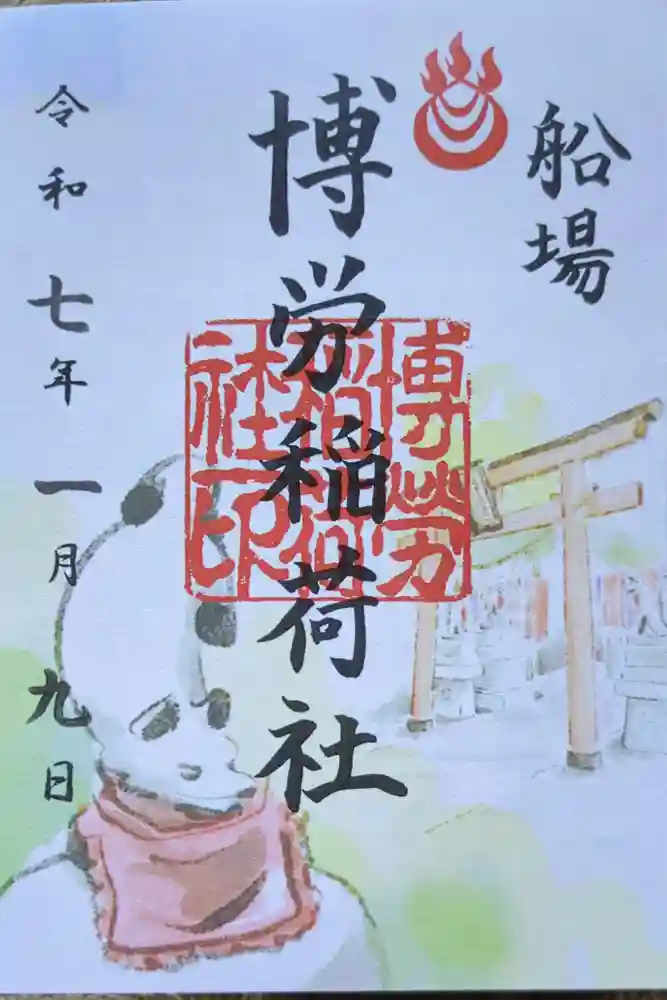 船場
博労稲荷社
博勞稲荷社印
令和七年一月九日